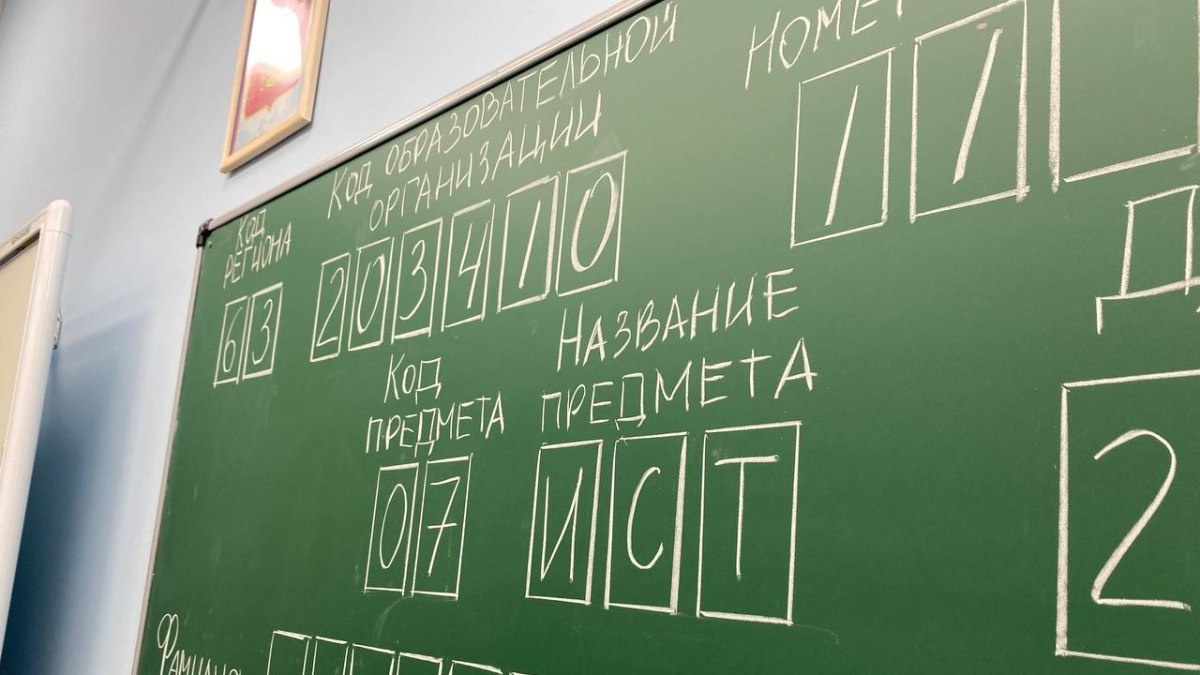 Код
региона
63
Код образовательной
организации
203410
Номе
11
Код
предмета
07
Название
предмета
ИСТ
Д
2